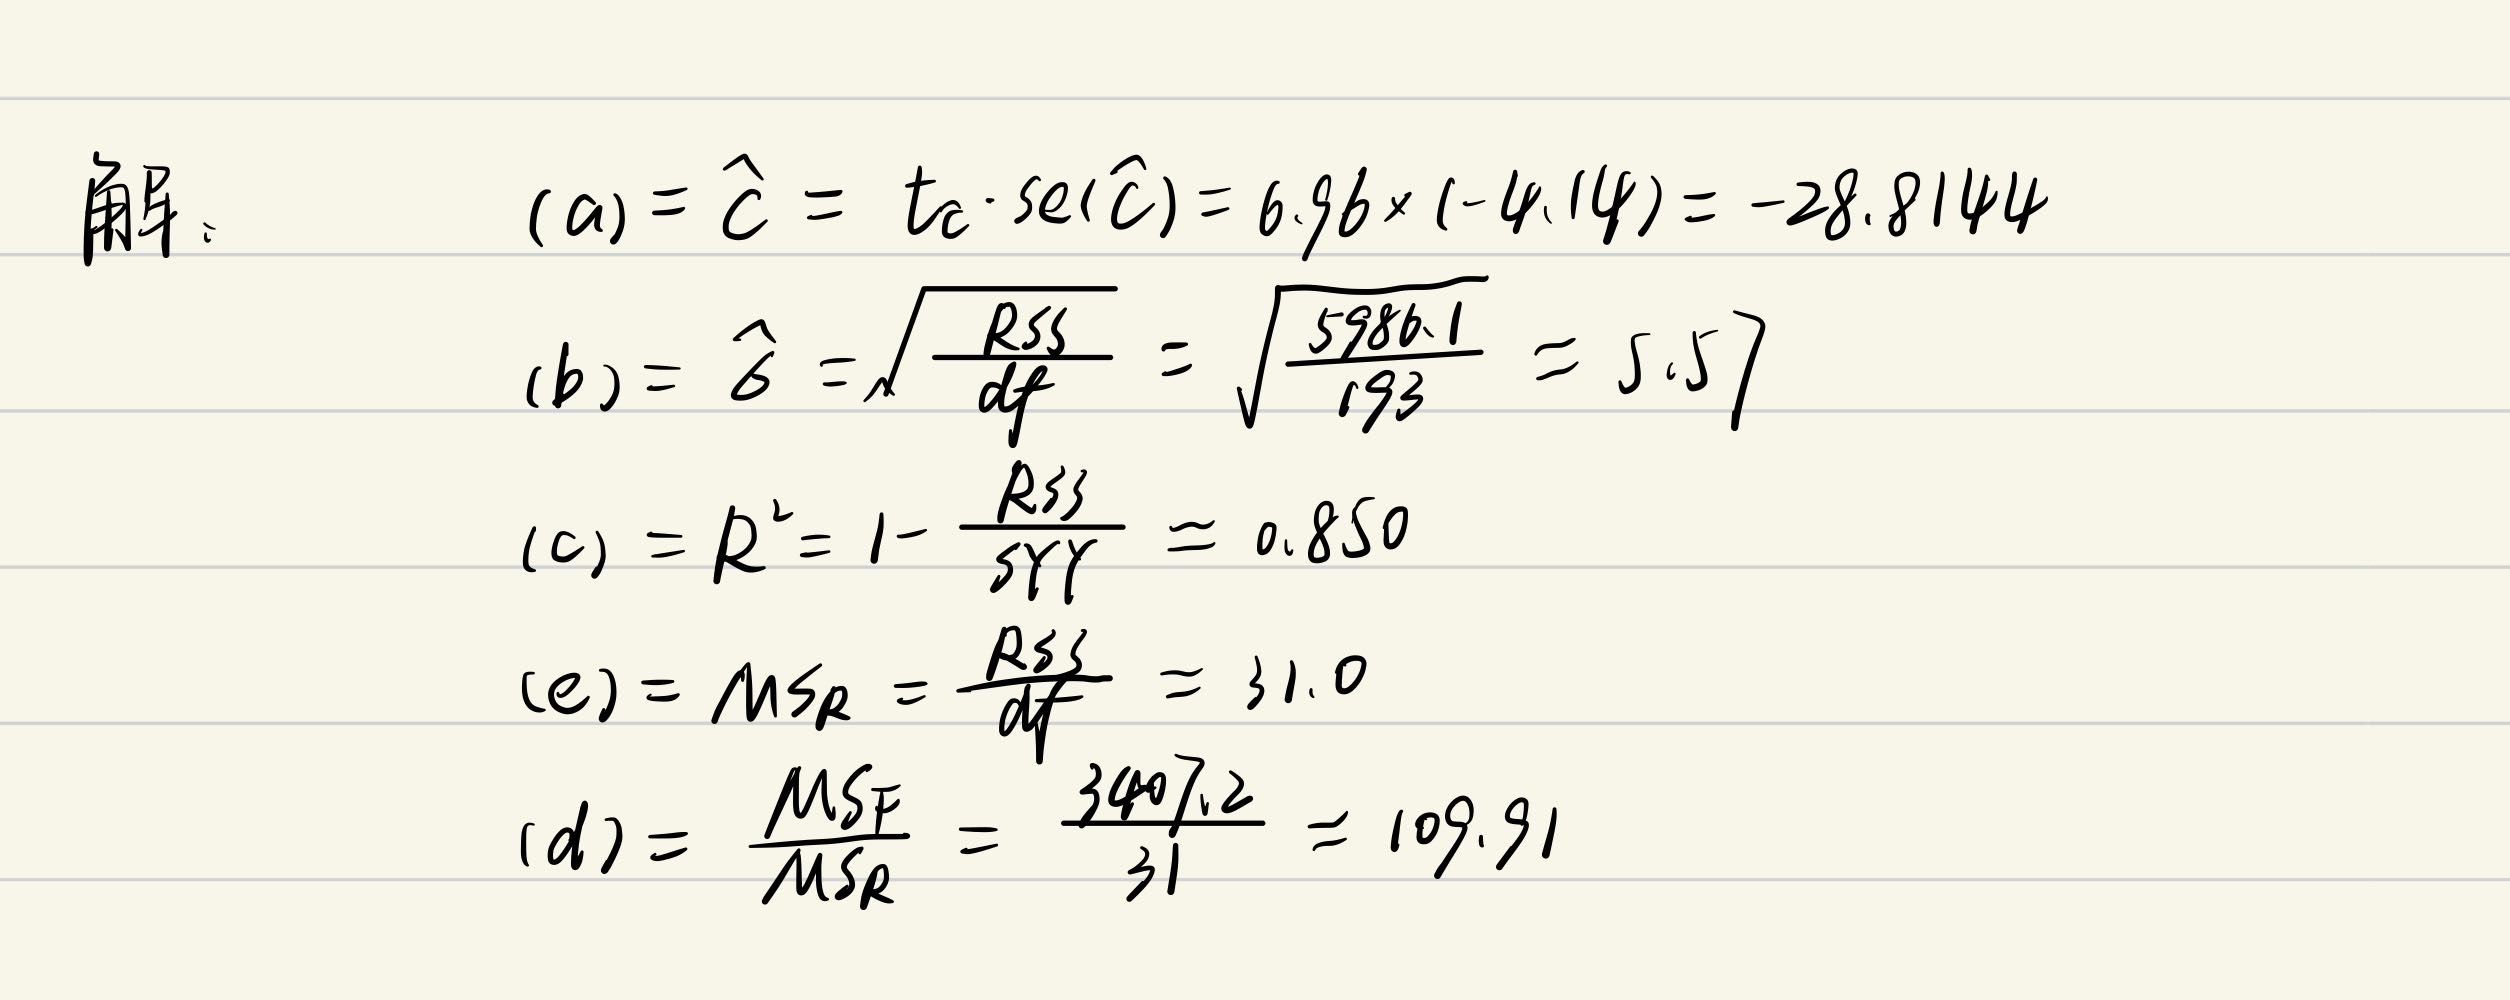 解:
(a) = ĉ = tc·se(ĉ) = 6.94 × (-4.14) = -28.8144
(b) = σ̂ = √(RSS/df) = √(5986.1/193) ≈ 5.57
(c) = R² = 1 - RSS/STT ≈ 0.850
(e) = MSR = RSS/df ≈ 31.0
(d) = MSE/MSR = 3407.2/31 ≈ 109.91